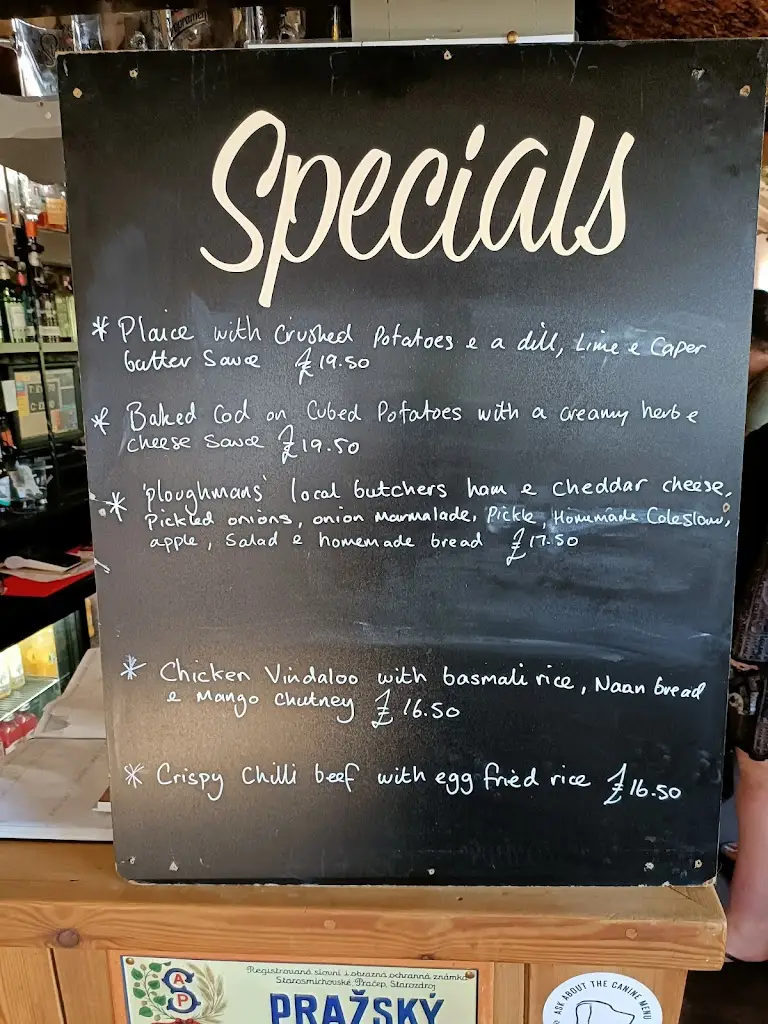 Specials
* Plaice with Crushed Potatoes e a dill, Lime e Caper
butter Sauce £19.50
* Baked Cod on Cubed Potatoes with a creamy herb e
cheese Sauce £19.50
* 'ploughmans' local butchers ham e cheddar cheese,
Pickled onions, onion Marmalade, Pickle, Homemade Coleslaw,
apple, Salad e homemade bread £17.50
* Chicken Vindaloo with basmati rice, Naan bread
e Mango Chutney £16.50
* Crispy Chilli beef with egg fried rice £16.50
Registrovaná slovní i obrazná ochranná známka
Starosmíchovské, Pračep, Starozdroj
AP
S
PRAŽSKÝ
ASK ABOUT THE CANINE MENU